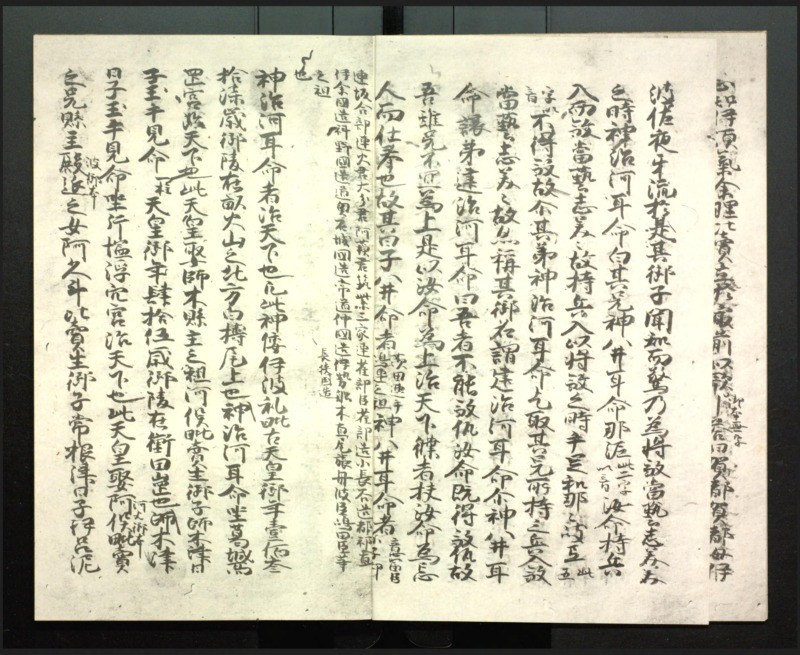 波佐夜牙流於是其御子聞知而驚乃為將殺當藝志美々
之時神沼河耳命白其兄神八井耳命那泥此二字以音汝命持兵
入而殺當藝志美々故持兵入以將殺之時手足和那々岐弖此五
字以音不得殺故尒其弟神沼河耳命乞取其兄所持之兵入殺
當藝志美々故亦稱其御名謂建沼河耳命尒神八井耳
命讓弟建沼河耳命曰吾者不能殺仇汝命既得殺仇故
吾雖兄不宜為上是以汝命為上治天下僕者扶汝命為忌
人而仕奉也故其日子八井命者茨田連手神八井耳命者意富臣
連坂合部連火君大分君阿蘇君筑紫三家連雀部臣雀部造小長谷造都祁直
伊余國造科野國造道奥石城國造常道仲國造伊勢舩木直尾張丹波臣嶋田臣等
長狹國造
之祖
也
神沼河耳命者治天下也凡此神倭伊波礼毗古天皇御年壹佰叁
拾漆歳御陵在畝火山之北方白檮尾上也神沼河耳命坐葛城高
罡宮治天下也此天皇娶師木縣主之祖河俣毗賣生御子師木津日
子玉手見命一柱天皇御年肆拾伍歳御陵在衝田崗也師木津
日子玉手見命坐片塩浮穴宮治天下也此天皇娶阿俣毗賣
之兄縣主殿延之女阿久斗比賣生御子常根津日子伊呂泥